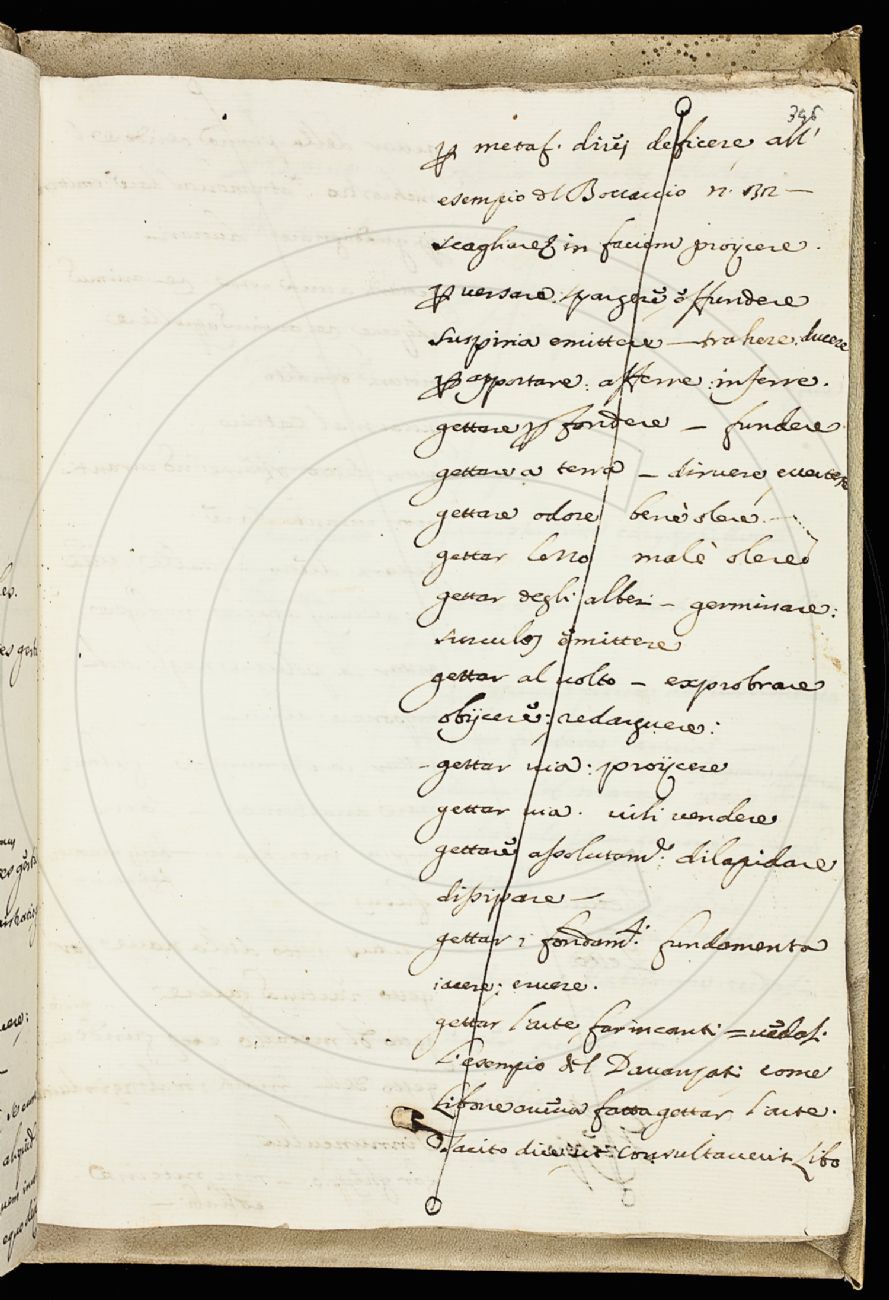 395
ꝑ metaf. diresi deficere all'
esempio del Boccaccio n. 1312 —
scagliare in faciem proijcere.
ꝑ versare. spargere effundere
suspiria emittere — trahere. ducere
ꝑ apportare: afferre: inferre.
gettare ꝑ fondere — fundere
gettare a terra — diruere evertere
gettare odore benè olere —
gettar lezzo malè olere
gettar degli alberi — germinare:
surculos emittere
gettar al uolto — exprobrare
obijcere: redarguere:
- gettar uia: proijcere
gettar uia. uili uendere
gettare assolutamte: dilapidare
dissipare —
gettar i fondamti: fundamenta
iacere: eruere.
gettar l'arte far incanti = uedasi
l'esempio del Dauanzati come
Libone aueua fatta gettar l'arte.
Tacito dice ut: consultauerit Libo